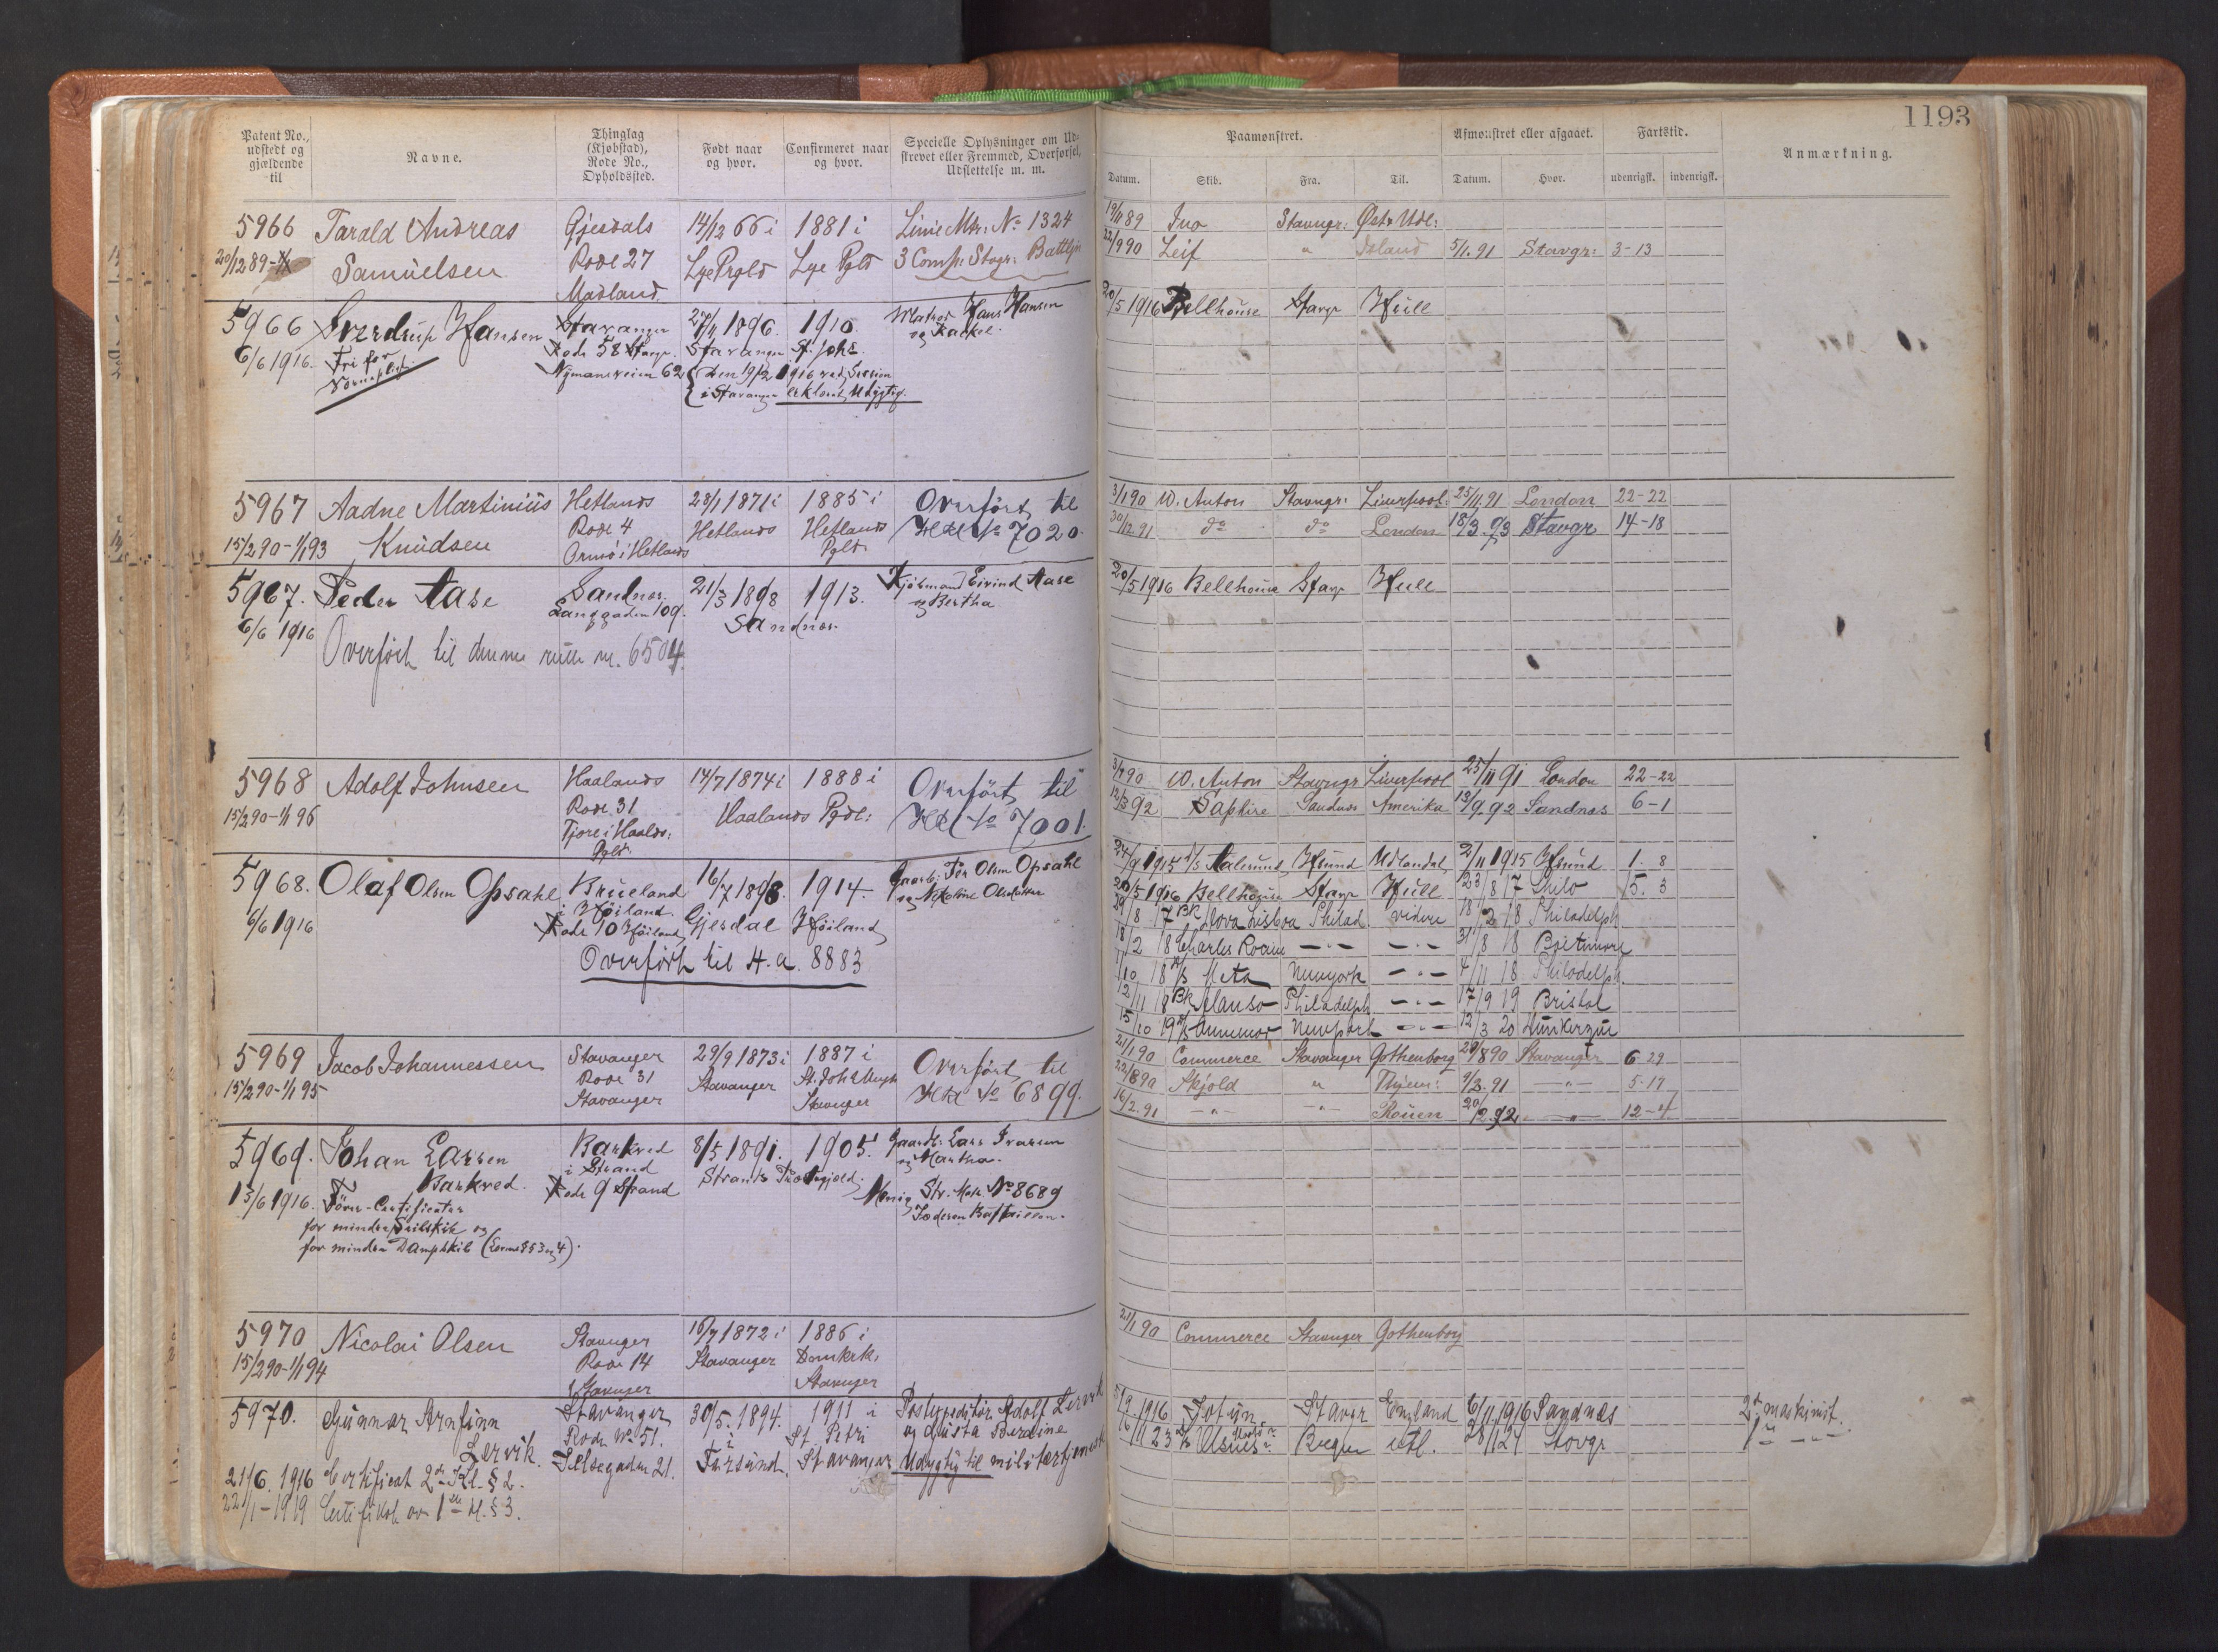 1193
Patent No., udstedt og gjældende til
Navne.
Thinglag (Kjøbstad), Rode No., Opholdssted.
Født naar og hvor.
Confirmeret naar og hvor.
Specielle Oplysninger om Udskrevet eller Fremmed, Overførsel, Udslettelse m. m.
Paamønstret.
Afmønstret eller afgaaet.
Fartstid.
Anmærkning.
Datum. Skib. Fra. Til. Datum. Hvor. udenrigsk. indenrigsk.
5966 Tarald Andreas Gjesdals 14/12 66 i 1881 i Linie Mtr: No 1324
20/12 89 Samuelsen Rode 27 Lye Prgld Lye Pgld 3 Comp: Stvgr: Battljn
Madland
19/11 89 Juo Stavngr: Østr Udl:
22/9 90 Leif " Island 5/1. 91 Stavgr: 3-13
5966 Sverdrup Hansen Stavanger 27/11 1896. 1910. Matros Hans Hansen
6/6 1916. Fri for Rode 58 Stavgr. Stavanger St. Johs. og Rackel.
Værnepligt Nymansveien 62 Den 19/2 1916 ved Session
i Stavanger erklæret Udygtig.
20/5 1916 Bellhouse Stavgr Hull
5967 Aadne Martinius Hetlands 28/1 1871 i 1885 i Overført til
15/2 90-1/1 93 Knudsen Rode 4 Hetlands Hetlands Hd No 7020.
Ormø i Hetlands Pgld
3/1 90 W. Anton Stavngr: Liverpool: 25/11. 91 London 22-22
30/12. 91 do do London 18/3. 93 Stavgr 14-18
5967. Peder Aase Sandnes. 21/3 1898 1913. Kjøbmand Eivind Aase
6/6 1916 Langgaden 109. Sandnes. og Bertha
Overført til denne rulle nr. 6504.
20/5 1916 Bellhouse Stavgr Hull
5968 Adolf Johnsen Haalands 14/7 1874 i 1888 i Overført til
15/2 90-1/1 96 Rode 31 Haalands Pgdl: Hd No 7001.
Tjore i Haalds:
Pgld.
3/1 90 W. Anton Stavngr Liverpool 25/11 91 London 22-22
12/3 92 Saphire Sandnes Amerika 13/9. 92 Sandnes 6-1
5968. Olaf Olsen Opsahl Brueland 16/7 1898. 1914. Gaardb: Per Olsen Opsahl
6/6 1916 i Høiland. Gjesdal Høiland og Nikoline Olsdatter
Rode 10 Høiland
Overført til H. a. 8883
24/9 1915 Aalesund Hsund Udlandet 2/11 1915 Hsund 1. 8
20/5 1916 Bellhouse Stavgr Hull 23/8 17 Philo 15. 3
29/8 17 Bk Nova Lisboa Philad. videre 18/2 18 Philadelph
18/2 18 Charles Racine 31/8 18 Baltimore
1/10 18 S/S Meta Newyork 4/11 18 Philadelph.
12/11 18 Bk Philadelph 17/9 19 Bristol
15/10 19 Newport 12/3 20 Dunkerque
5969 Jacob Johannessen Stavanger 29/9 1873 i 1887 i Overført til
15/2 90-1/1 95 Rode 31 Stavanger St. Joh's Stavanger Hd No 6899.
Stavanger
21/1 90 Commerce Stavanger Gothenborg 20/8 90 Stavanger 6 29
22/8 90 Skjold " 9/2. 91 - " - 5-19
16/2. 91 - " - - " - Rouen 20/2. 92 - " - 12-4
5969. Johan Larsen Barkved 8/5 1891. 1905. Gaardb: Lars Ivarsen
13/6 1916. Barkved. i Strand Strands og Martha.
Rode 9 Strand Menig Str. Mtr. No 8689
Fører-Certificater Jæderen Bataillon.
for mindre Seilskib og
for mindre Dampskib (Lovens § 3 og 4).
5970 Nicolai Olsen Stavanger 16/7 1872 i 1886 i
15/2 90-1/1 94 Rode 14 Stavanger Domkrk.
Stavanger Stavanger
21/1 90 Commerce Stavanger Gothenborg
5970. Gunnar Arnfinn Stavanger 30/5. 1894. 1911 i Postexpeditør Adolf Lervik
Lervik. Rode No 51. i St. Petri og Gusta Berdine
Farsund. Stavanger Udygtig til militærtjeneste
21/6. 1916 Certificat 2den Kl. § 2.
22/1-1919 Certifikat om 1ste Kl. § 3.
5/9 1916 Jotun. Stavgr England 6/11. 1916 Sandnes 2den maskinist.
16/1 23 Bergen utl. 28/1 24 Stavgr 1ste - " -